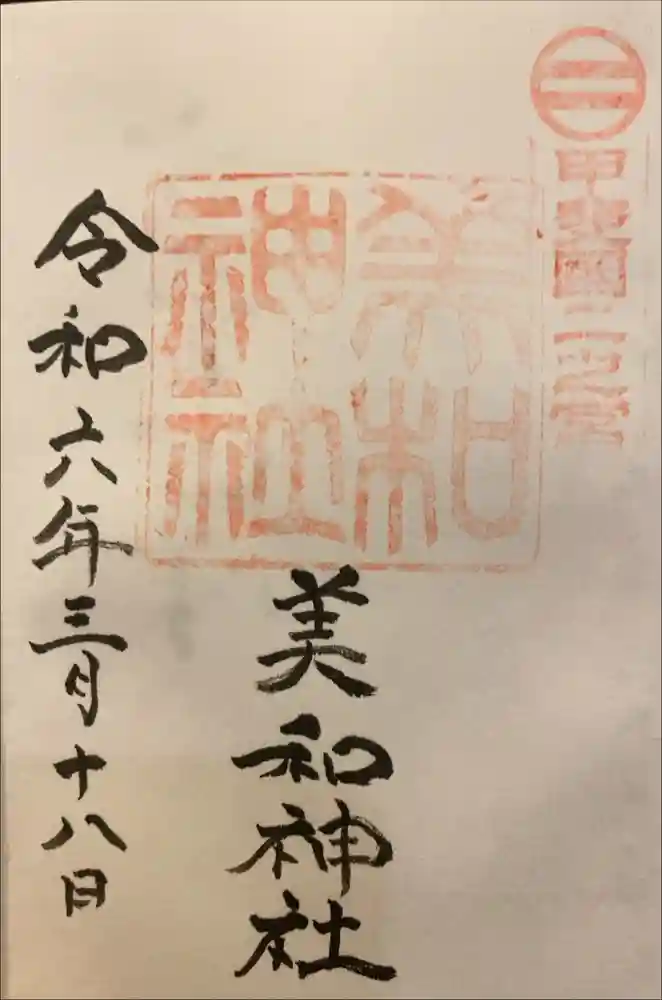 甲斐國二之宮
美和
神社
美和神社
令和六年三月十八日